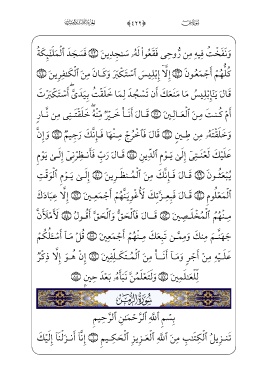 وَنَفَخْتُ فِيهِ مِن رُّوحِى فَقَعُوا۟ لَهُۥ سَٰجِدِينَ ۝ فَسَجَدَ ٱلْمَلَٰٓئِكَةُ
كُلُّهُمْ أَجْمَعُونَ ۝ إِلَّآ إِبْلِيسَ ٱسْتَكْبَرَ وَكَانَ مِنَ ٱلْكَٰفِرِينَ ۝
قَالَ يَٰٓإِبْلِيسُ مَا مَنَعَكَ أَن تَسْجُدَ لِمَا خَلَقْتُ بِيَدَىَّ أَسْتَكْبَرْتَ
أَمْ كُنتَ مِنَ ٱلْعَالِينَ ۝ قَالَ أَنَا۠ خَيْرٌ مِّنْهُ خَلَقْتَنِى مِن نَّارٍ
وَخَلَقْتَهُۥ مِن طِينٍ ۝ قَالَ فَٱخْرُجْ مِنْهَا فَإِنَّكَ رَجِيمٌ ۝ وَإِنَّ
عَلَيْكَ لَعْنَتِىٓ إِلَىٰ يَوْمِ ٱلدِّينِ ۝ قَالَ رَبِّ فَأَنظِرْنِىٓ إِلَىٰ يَوْمِ
يُبْعَثُونَ ۝ قَالَ فَإِنَّكَ مِنَ ٱلْمُنظَرِينَ ۝ إِلَىٰ يَوْمِ ٱلْوَقْتِ
ٱلْمَعْلُومِ ۝ قَالَ فَبِعِزَّتِكَ لَأُغْوِيَنَّهُمْ أَجْمَعِينَ ۝ إِلَّا عِبَادَكَ
مِنْهُمُ ٱلْمُخْلَصِينَ ۝ قَالَ فَٱلْحَقُّ وَٱلْحَقَّ أَقُولُ ۝ لَأَمْلَأَنَّ
جَهَنَّمَ مِنكَ وَمِمَّن تَبِعَكَ مِنْهُمْ أَجْمَعِينَ ۝ قُلْ مَآ أَسْـَٔلُكُمْ
عَلَيْهِ مِنْ أَجْرٍ وَمَآ أَنَا۠ مِنَ ٱلْمُتَكَلِّفِينَ ۝ إِنْ هُوَ إِلَّا ذِكْرٌ
لِّلْعَٰلَمِينَ ۝ وَلَتَعْلَمُنَّ نَبَأَهُۥ بَعْدَ حِينٍۭ ۝
سُورَةُ الزُّمَرِ
بِسْمِ ٱللَّهِ ٱلرَّحْمَٰنِ ٱلرَّحِيمِ
تَنزِيلُ ٱلْكِتَٰبِ مِنَ ٱللَّهِ ٱلْعَزِيزِ ٱلْحَكِيمِ ۝ إِنَّآ أَنزَلْنَآ إِلَيْكَ